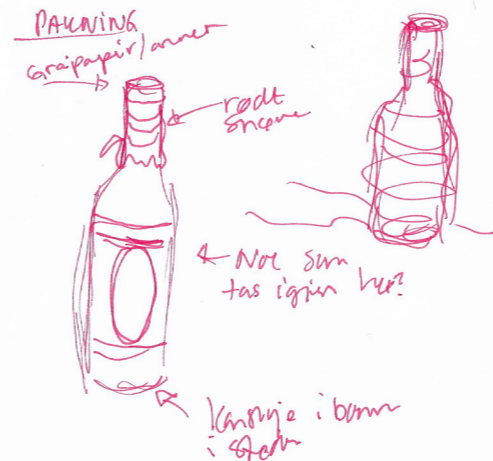 PAKNING
Gråpapir/annet
rødt
snøre
Noe som
tas igjen her?
kanskje i bunn
i steden